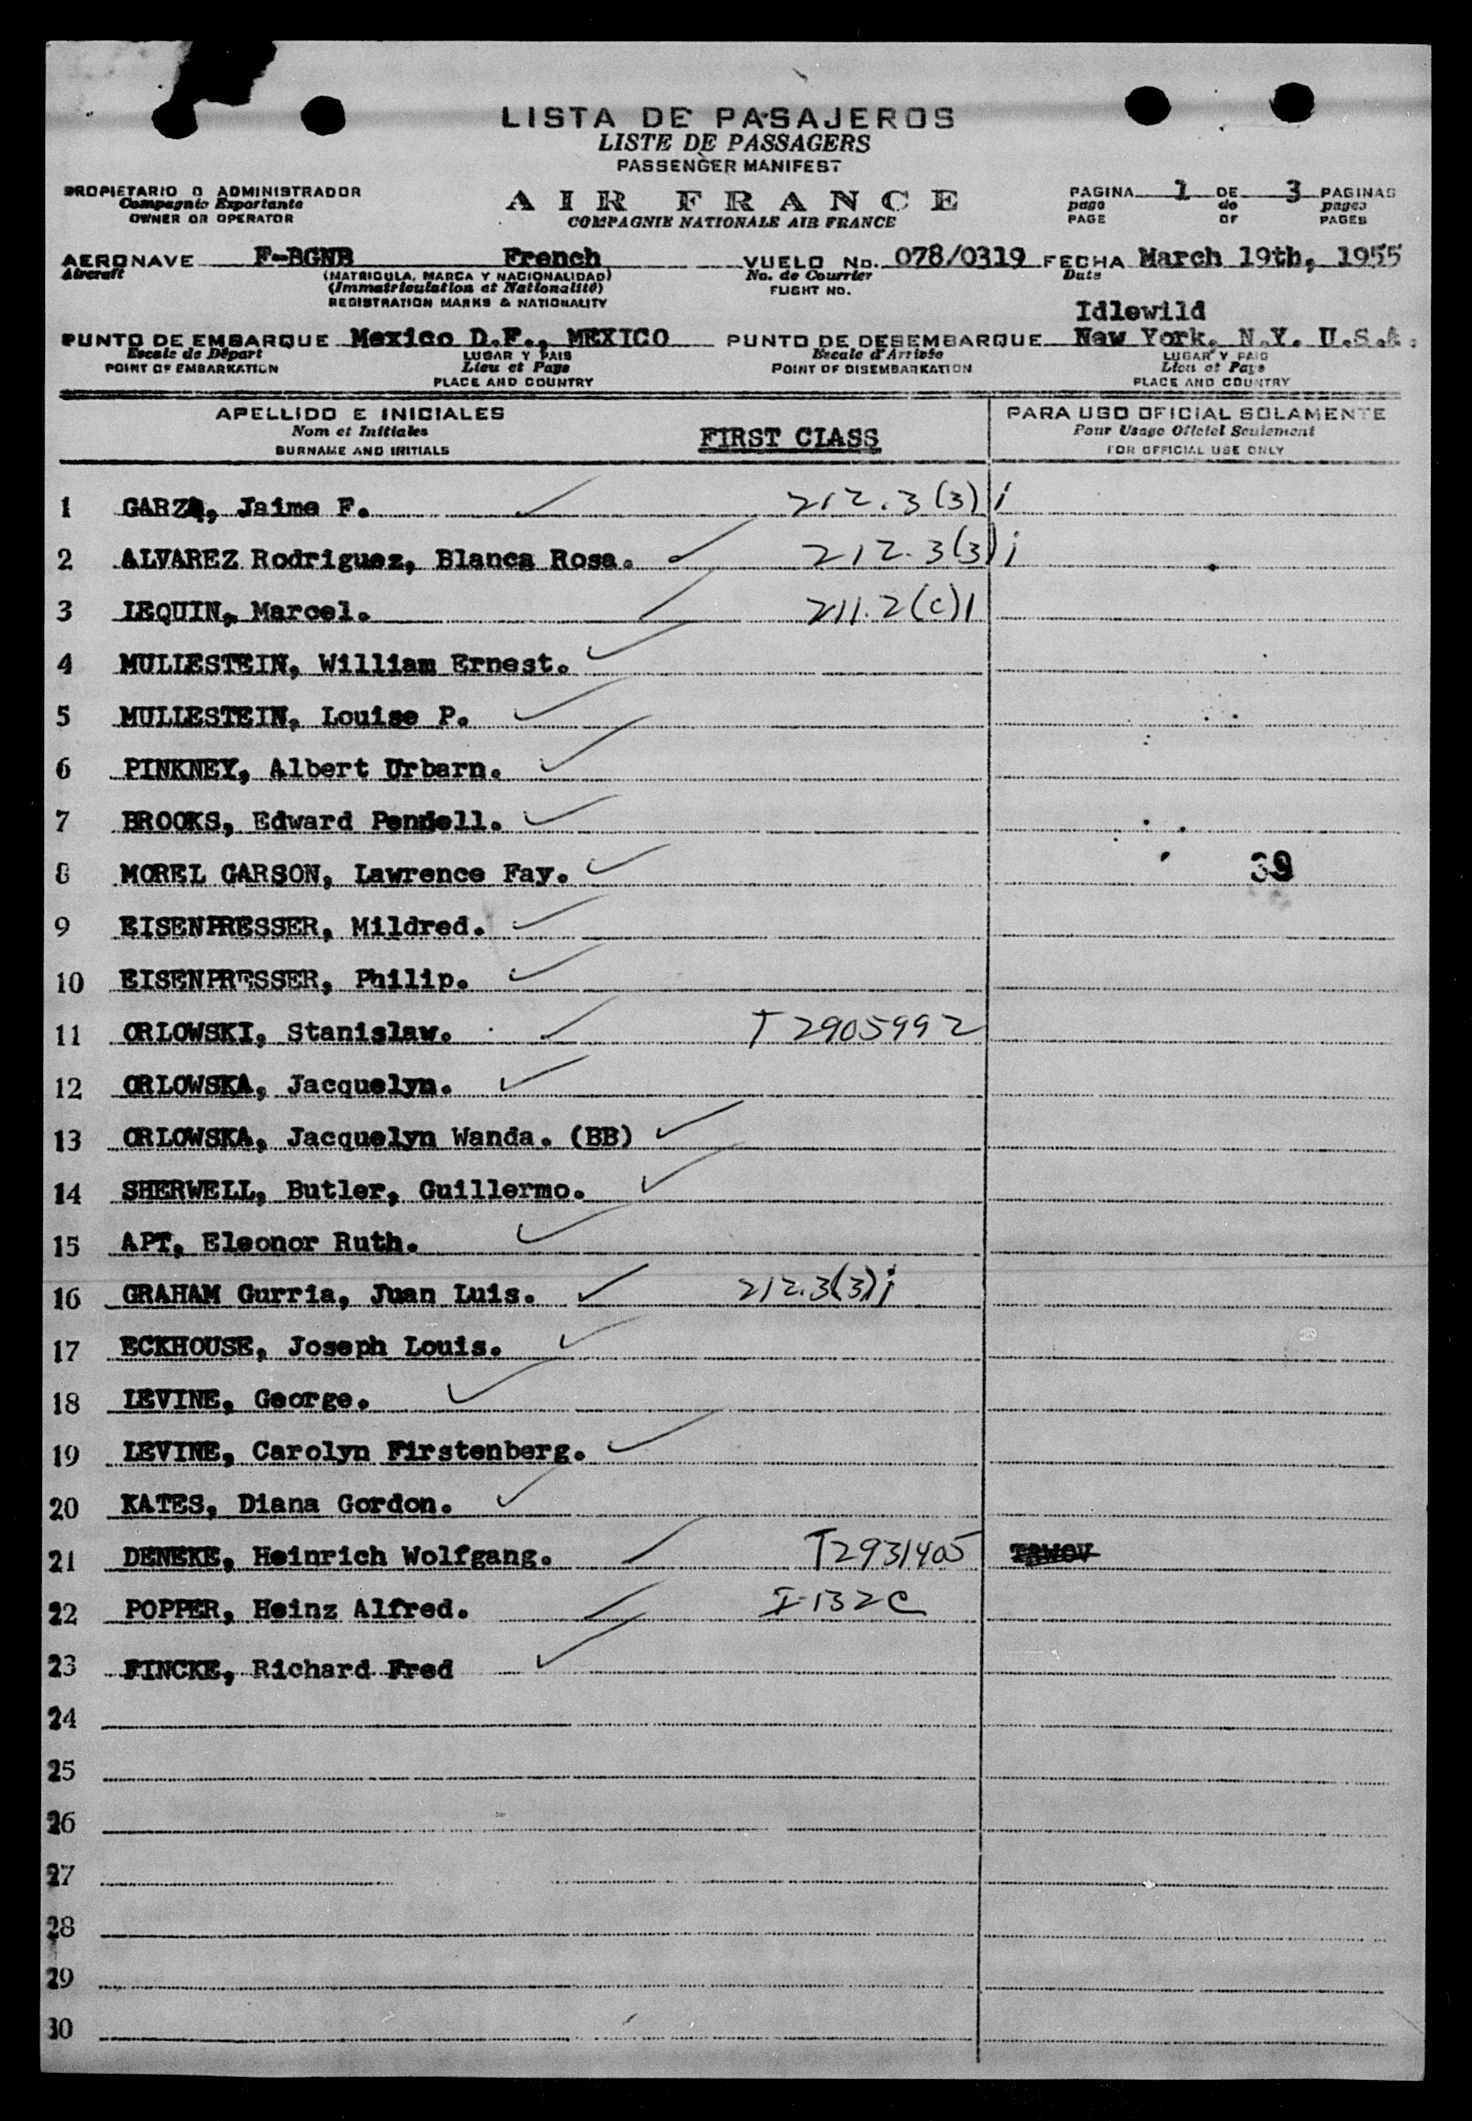 LISTA DE PASAJEROS
LISTE DE PASSAGERS
PASSENGER MANIFEST
PROPIETARIO O ADMINISTRADOR
Compagnie Exportante
OWNER OR OPERATOR
AIR FRANCE
COMPAGNIE NATIONALE AIR FRANCE
PAGINA 1 DE 3 PAGINAS
page de pages
PAGE OF PAGES
AERONAVE F-BGNB French VUELO No. 078/0319 FECHA March 19th, 1955
Aircraft (MATRICULA, MARCA Y NACIONALIDAD) No. de Courrier Date
(Immatriculation et Nationalité) FLIGHT NO.
REGISTRATION MARKS & NATIONALITY
Idlewild
PUNTO DE EMBARQUE Mexico D.F., MEXICO PUNTO DE DESEMBARQUE New York, N.Y. U.S.A.
Escale de Départ LUGAR Y PAIS Escale d'Arrivée LUGAR Y PAIS
POINT OF EMBARKATION Lieu et Pays POINT OF DISEMBARKATION Lieu et Pays
PLACE AND COUNTRY PLACE AND COUNTRY
APELLIDO E INICIALES PARA USO OFICIAL SOLAMENTE
Nom et Initiales FIRST CLASS Pour Usage Officiel Seulement
SURNAME AND INITIALS FOR OFFICIAL USE ONLY
1 GARZA, Jaime F. 212.3(3)i
2 ALVAREZ Rodriguez, Blanca Rosa. 212.3(3)i
3 LEQUIN, Marcel. 211.2(c)1
4 MULLESTEIN, William Ernest.
5 MULLESTEIN, Louise P.
6 PINKNEY, Albert Urbarn.
7 BROOKS, Edward Pendell.
8 MOREL GARSON, Lawrence Fay. 39
9 EISENPRESSER, Mildred.
10 EISENPRESSER, Philip.
11 ORLOWSKI, Stanislaw. T2905992
12 ORLOWSKA, Jacquelyn.
13 ORLOWSKA, Jacquelyn Wanda. (BB)
14 SHERWELL, Butler, Guillermo.
15 APT, Eleonor Ruth.
16 GRAHAM Gurria, Juan Luis. 212.3(3)i
17 ECKHOUSE, Joseph Louis.
18 LEVINE, George.
19 LEVINE, Carolyn Firstenberg.
20 KATES, Diana Gordon.
21 DENEKE, Heinrich Wolfgang. T2931405
22 POPPER, Heinz Alfred. I-132C
23 FINCKE, Richard Fred
24
25
26
27
28
29
30